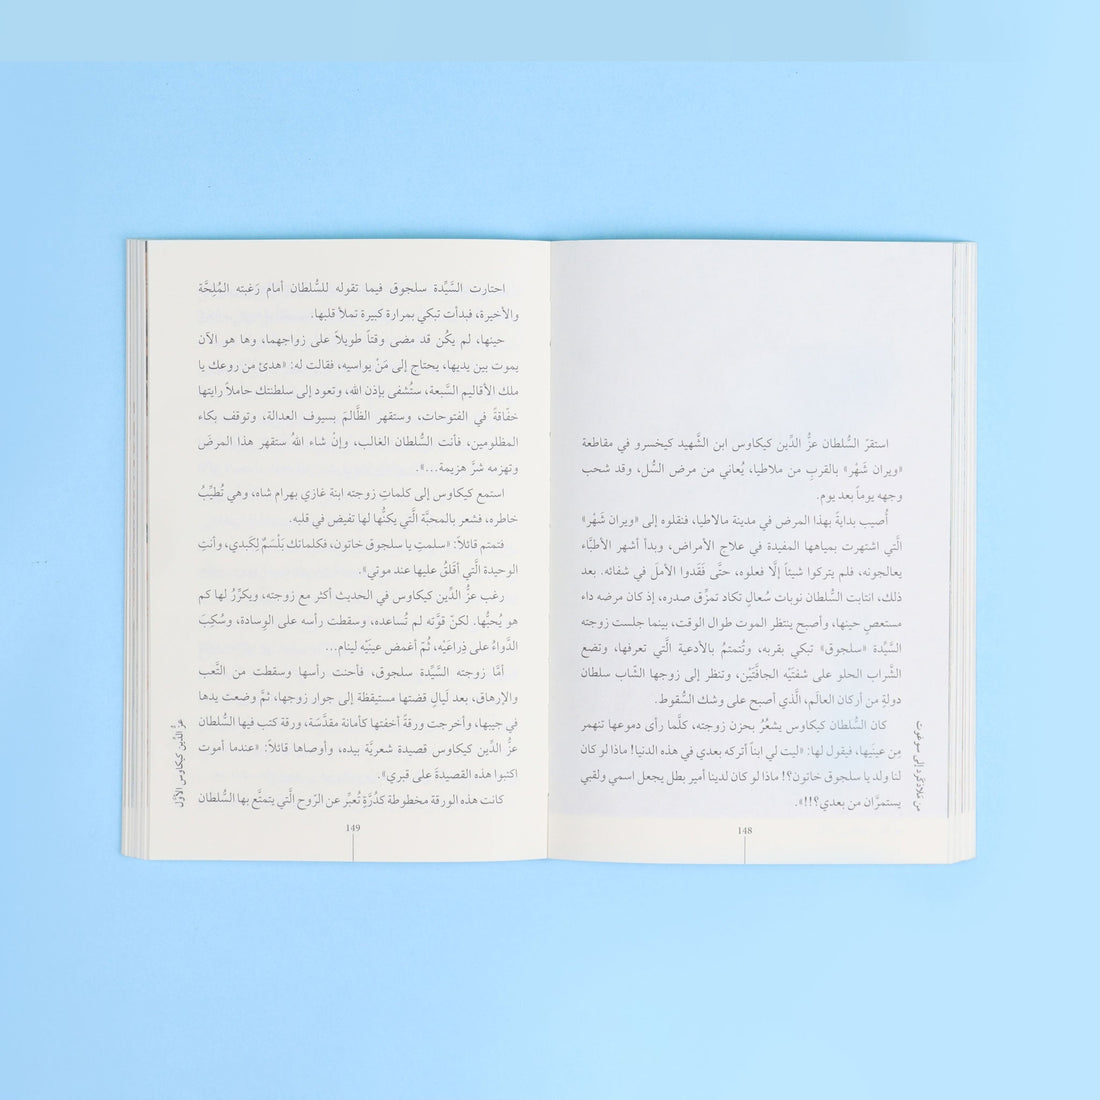 استقرّ السُّلطان عزُّ الدِّين كيكاوس ابن الشَّهيد كيخسرو في مقاطعة
«ويران شَهْر» بالقربِ من ملاطيا، يُعاني من مرض السُّل، وقد شحب
وجهه يوماً بعد يوم.
أُصيب بدايةً بهذا المرض في مدينة مالاطيا، فنقلوه إلى «ويران شَهْر»
الَّتي اشتهرت بمياهها المفيدة في علاج الأمراض، وبدأ أشهر الأطبَّاء
يعالجونه، فلم يتركوا شيئاً إلَّا فعلوه، حتَّى فَقَدوا الأملَ في شفائه. بعد
ذلك، انتابت السُّلطان نوبات سُعالٍ تكاد تمزِّق صدره، إذ كان مرضه داء
مستعصٍ حينها، وأصبح ينتظر الموت طوال الوقت، بينما جلست زوجته
السَّيِّدة «سلجوق» تبكي بقربه، وتُتمتمُ بالأدعية الَّتي تعرفها، وتضع
الشَّراب الحلو على شفتَيْه الجافَّتَيْن، وتنظر إلى زوجها الشَّاب سلطان
دولةٍ من أركان العالَم، الَّذي أصبح على وشك السُّقوط.
كان السُّلطان كيكاوس يشعُرُ بحزن زوجته، كلَّما رأى دموعها تنهمر
مِن عينَيها، فيقول لها: «ليت لي ابناً أتركه بعدي في هذه الدنيا! ماذا لو كان
لنا ولد يا سلجوق خاتون؟! ماذا لو كان لدينا أمير بطل يجعل اسمي ولقبي
يستمرَّان من بعدي؟!!».
من مَلاذكرد إلى سوغوت
148
احتارت السَّيِّدة سلجوق فيما تقوله للسُّلطان أمام رَغبته المُلِحَّة
والأخيرة، فبدأت تبكي بمرارة كبيرة تملأ قلبها.
حينها، لم يكُن قد مضى وقتاً طويلاً على زواجهما، وها هو الآن
يموت بين يديها، يحتاج إلى مَنْ يواسيه، فقالت له: «هدئ من روعك يا
ملك الأقاليم السَّبعة، ستُشفى بإذن الله، وتعود إلى سلطنتك حاملاً رايتها
خفّاقةً في الفتوحات، وستقهر الظَّالمَ بسيوف العدالة، وتوقف بكاء
المظلومين، فأنت السُّلطان الغالب، وإنْ شاء اللهُ ستقهر هذا المرضَ
وتهزمه شرَّ هزيمة...».
استمع كيكاوس إلى كلماتِ زوجته ابنة غازي بهرام شاه، وهي تُطيِّبُ
خاطره، فشعر بالمحبَّة الَّتي يكنُّها لها تفيض في قلبه.
فتمتم قائلاً: «سلمتِ يا سلجوق خاتون، فكلماتك بَلْسَمٌ لِكَبدي، وأنتِ
الوحيدة الَّتي أقلقُ عليها عند موتي».
رغب عزُّ الدِّين كيكاوس في الحديث أكثر مع زوجته، ويكرِّرُ لها كم
هو يُحبُّها. لكنّ قوَّته لم تُساعده، وسقطت رأسه على الوِسادة، وسُكِبَ
الدَّواءُ على ذِراعَيْه، ثُمّ أغمض عينَيْه لينام...
أمَّا زوجته السَّيِّدة سلجوق، فأحنت رأسها وسقطت من التَّعب
والإرهاق، بعد لَيالٍ قضتها مستيقظة إلى جوار زوجها، ثمَّ وضعت يدها
في جيبها، وأخرجت ورقةً أخفتها كأمانة مقدَّسَة، ورقة كتب فيها السُّلطان
عزُّ الدِّين كيكاوس قصيدة شعريَّة بيده، وأوصاها قائلاً: «عندما أموت
اكتبوا هذه القصيدةَ على قبري».
كانت هذه الورقة مخطوطة كدُرَّةٍ تُعبِّر عن الرّوح الَّتي يتمتَّع بها السُّلطان
عزُّ الدِّين كيكاوس الأوَّل
149